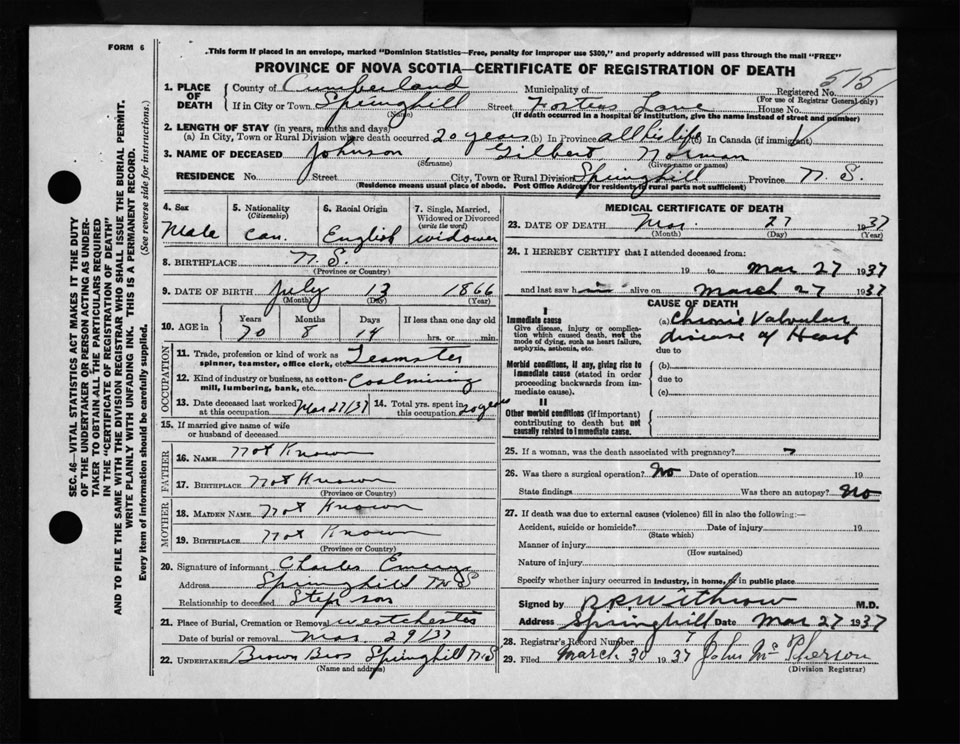 FORM 6
This form if placed in an envelope, marked "Dominion Statistics—Free, penalty for improper use $300," and properly addressed will pass through the mail "FREE"
PROVINCE OF NOVA SCOTIA—CERTIFICATE OF REGISTRATION OF DEATH
SEC. 46—VITAL STATISTICS ACT MAKES IT THE DUTY
OF THE UNDERTAKER OR PERSON ACTING AS UNDER-
TAKER TO OBTAIN ALL THE PARTICULARS REQUIRED
IN THE "CERTIFICATE OF REGISTRATION OF DEATH"
AND TO FILE THE SAME WITH THE DIVISION REGISTRAR WHO SHALL ISSUE THE BURIAL PERMIT.
WRITE PLAINLY WITH UNFADING INK. THIS IS A PERMANENT RECORD.
Every item of information should be carefully supplied. (See reverse side for instructions.)
1. PLACE OF DEATH County of Cumberland Municipality of Registered No. 515
(For use of Registrar General only)
If in City or Town Springhill Street Lane House No.
(Name) (If death occurred in a hospital or institution, give the name instead of street and number)
2. LENGTH OF STAY (in years, months and days)
(a) In City, Town or Rural Division where death occurred 20 years (b) In Province all his life (c) In Canada (if immigrant)
3. NAME OF DECEASED Johnson Gilbert Norman
(Surname) (Given name or names)
RESIDENCE No. Street City, Town or Rural Division Springhill Province N.S.
(Residence means usual place of abode. Post Office Address for residents in rural parts not sufficient)
4. Sex 5. Nationality (Citizenship) 6. Racial Origin 7. Single, Married, Widowed or Divorced (write the word)
Male Can. English widower
8. BIRTHPLACE N.S.
(Province or Country)
9. DATE OF BIRTH July 13 1866
(Month) (Day) (Year)
10. AGE in Years Months Days If less than one day old
70 8 14 hrs. or min.
OCCUPATION
11. Trade, profession or kind of work as spinner, teamster, office clerk, etc. Teamster
12. Kind of industry or business, as cotton-mill, lumbering, bank, etc. Coalmining
13. Date deceased last worked at this occupation Mar 27/37 14. Total yrs. spent in this occupation 20 years
15. If married give name of wife or husband of deceased
FATHER
16. NAME Not Known
17. BIRTHPLACE Not Known
(Province or Country)
MOTHER
18. MAIDEN NAME Not Known
19. BIRTHPLACE Not Known
(Province or Country)
20. Signature of informant Charles Emery
Address Springhill N S
Relationship to deceased Step son
21. Place of Burial, Cremation or Removal Westchester
Date of burial or removal Mar. 29/37
22. UNDERTAKER Brown Bros Springhill N.S
(Name and address)
MEDICAL CERTIFICATE OF DEATH
23. DATE OF DEATH Mar. 27 1937
(Month) (Day) (Year)
24. I HEREBY CERTIFY that I attended deceased from:
19 to Mar 27 1937
and last saw h im alive on March 27 1937
CAUSE OF DEATH
I
Immediate cause
Give disease, injury or complication which caused death, not the mode of dying, such as heart failure, asphyxia, asthenia, etc.
(a) Chronic Valvular
disease of Heart
due to
Morbid conditions, if any, giving rise to immediate cause (stated in order proceeding backwards from immediate cause).
(b)
due to
(c)
II
Other morbid conditions (if important) contributing to death but not causally related to immediate cause.
25. If a woman, was the death associated with pregnancy?
26. Was there a surgical operation? No Date of operation 19
State findings Was there an autopsy? No
27. If death was due to external causes (violence) fill in also the following:—
Accident, suicide or homicide? Date of injury 19
(State which)
Manner of injury
(How sustained)
Nature of injury
Specify whether injury occurred in industry, in home, or in public place
Signed by Withrow M.D.
Address Springhill Date Mar 27 1937
28. Registrar's Record Number 7
29. Filed March 30 1937 John McPherson
(Division Registrar)